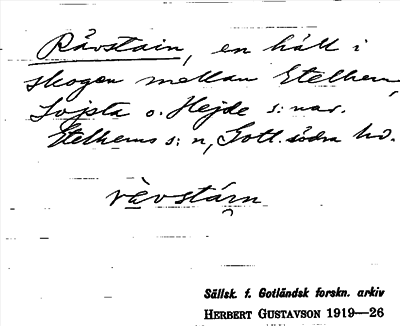 Rävstain, en häll i
skogen mellan Etelhem,
Lojsta o. Hejde s:nar.
Etelhems s:n, Gotl. södra hd.
rävstáın
Sällsk. f. Gotländsk forskn. arkiv
HERBERT GUSTAVSON 1919—26